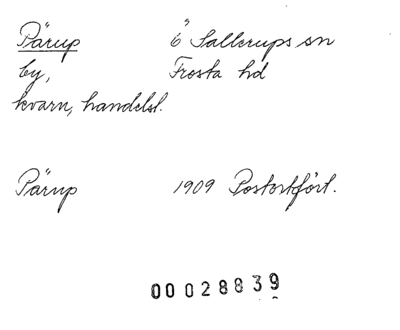 Pärup Ö Sallerups sn
by, Frosta hd
kvarn, handelsl.
Pärup 1909 Postortfört.
00028839